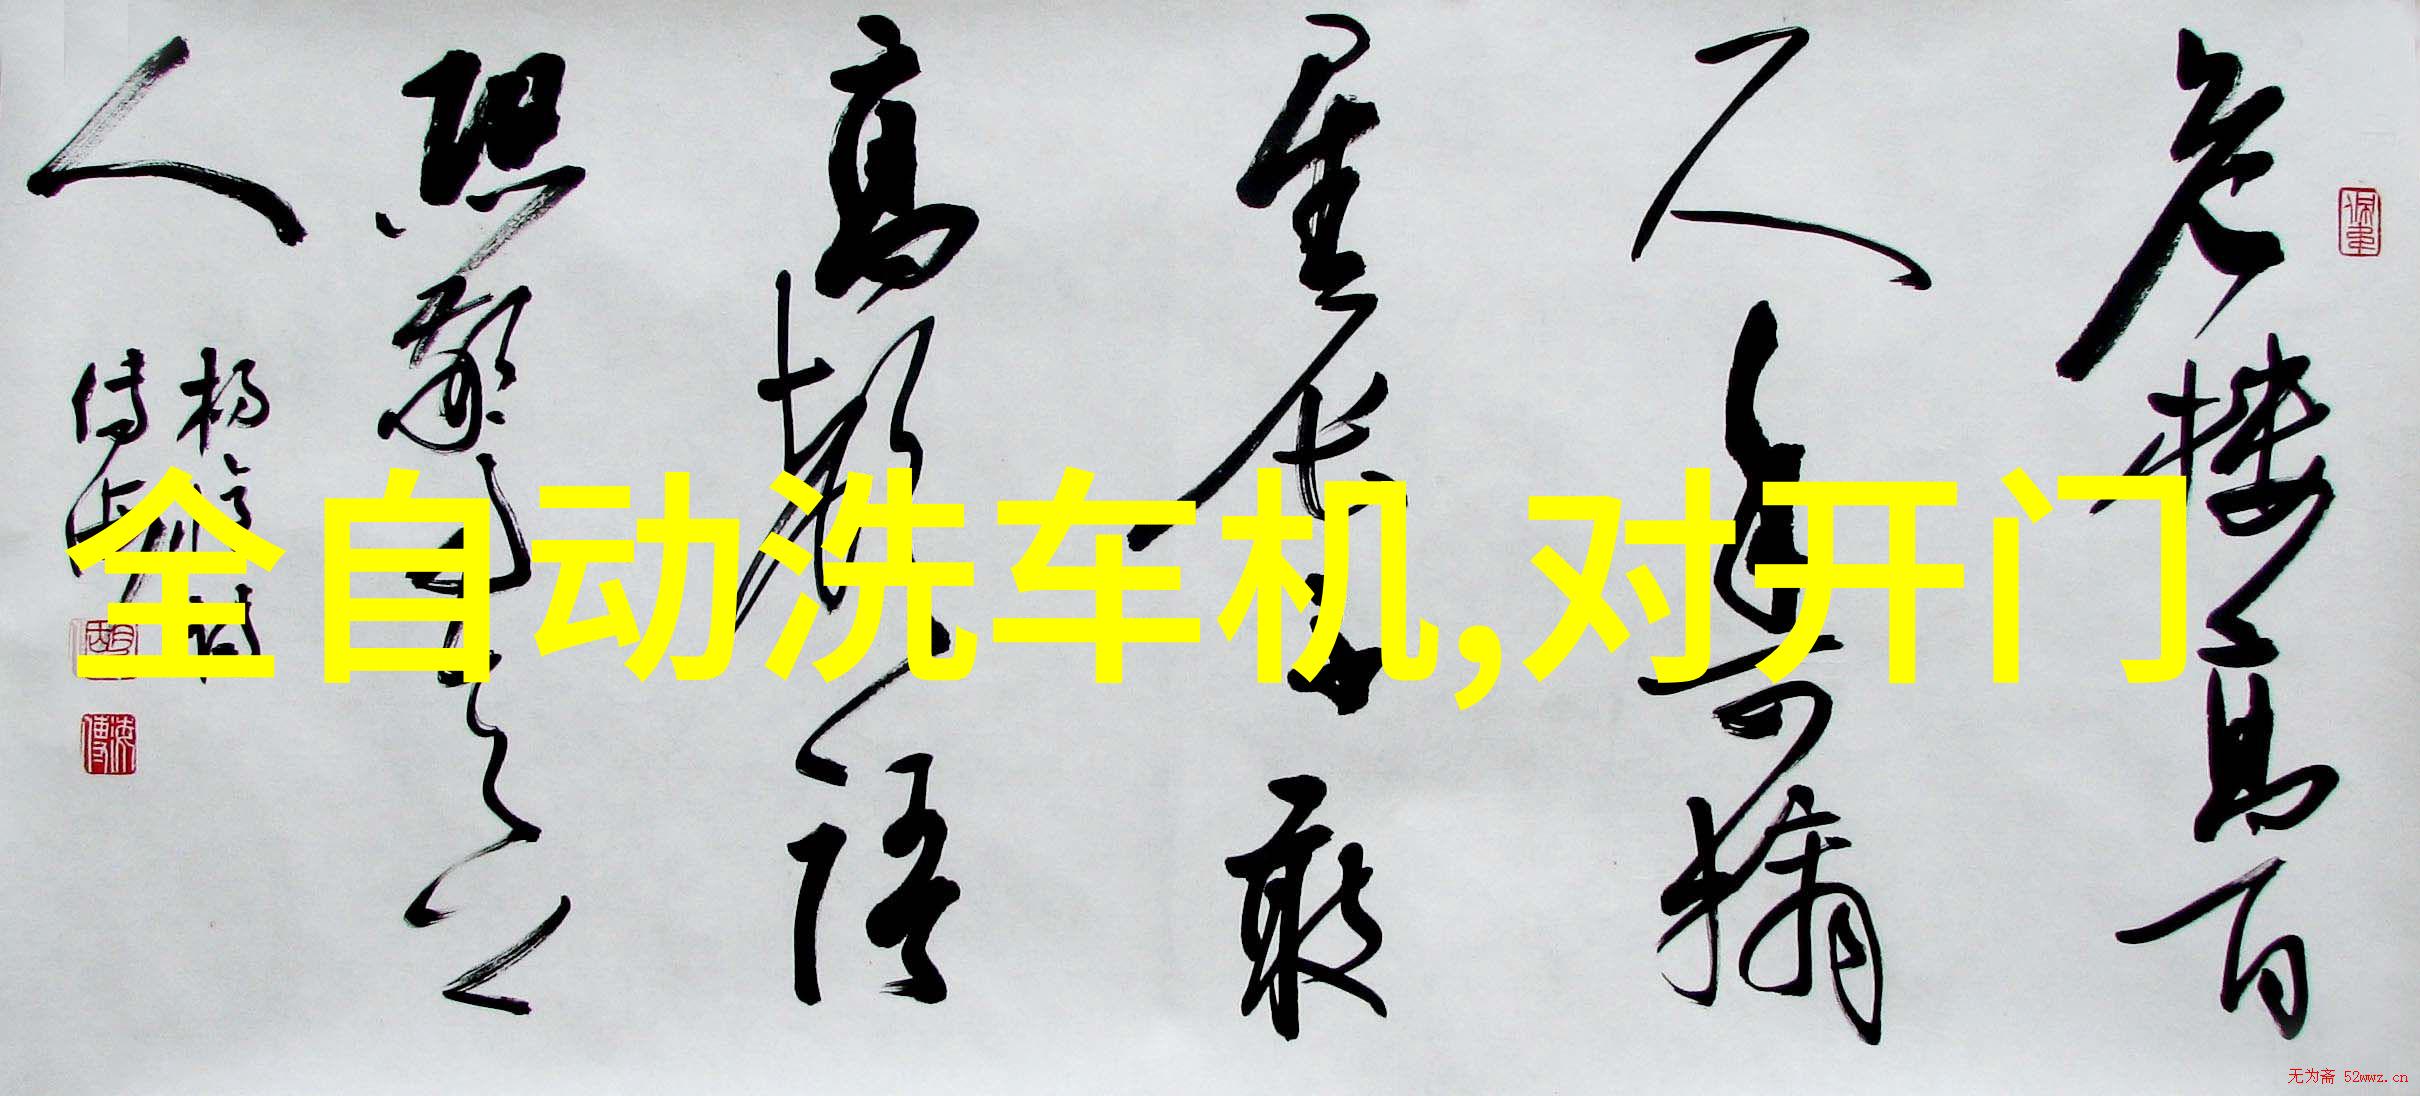 危楼高百
尺手可摘
星辰不敢
高声语
恐惊天上
人
全自动洗车机,对开门
无为斋 52wwz.cn